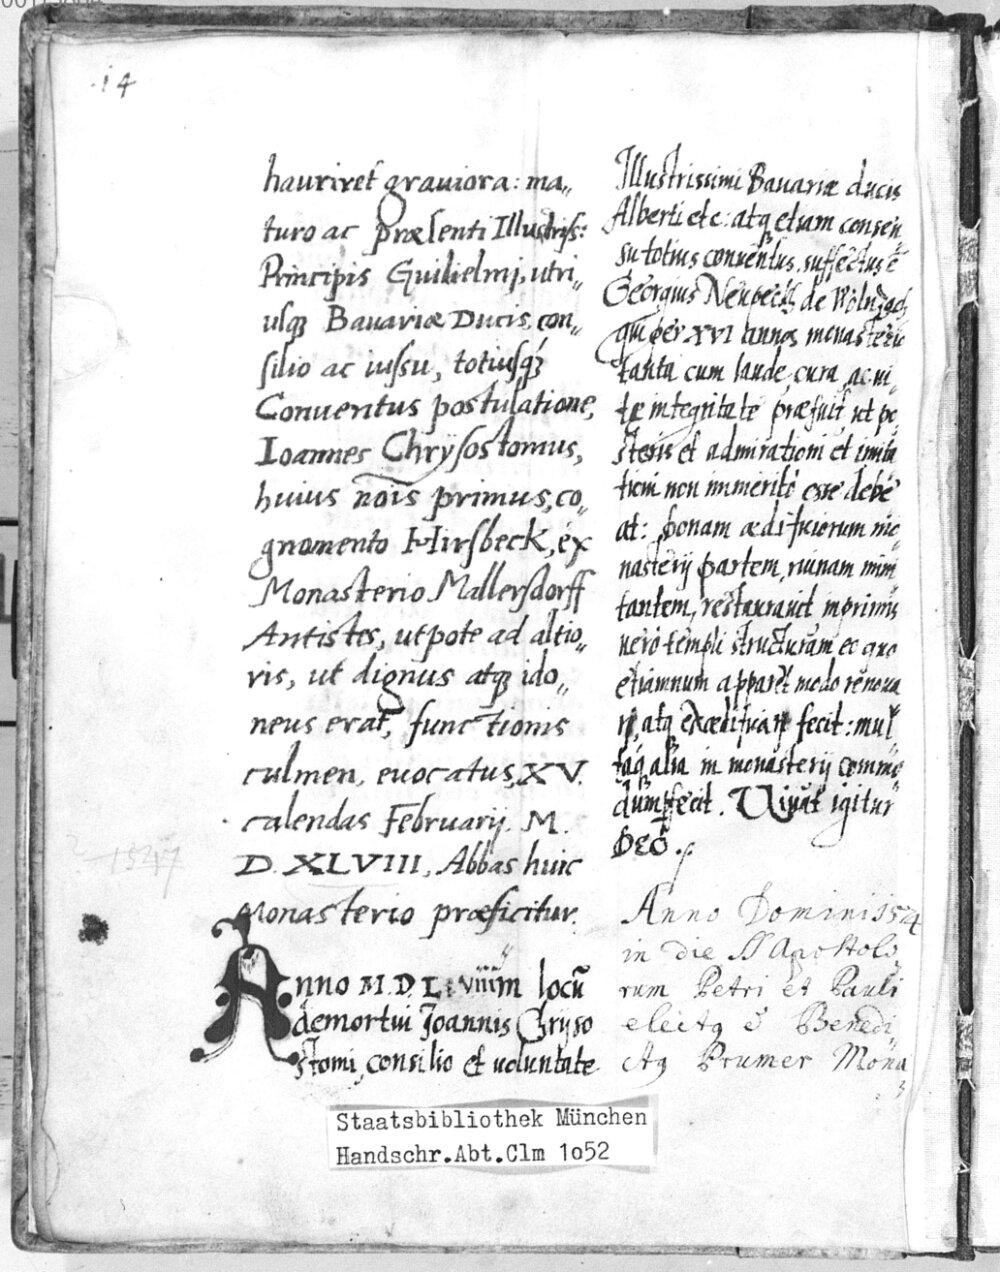 14
hauriret graviora: ma„
turo ac præsenti Illustriſs:
Principis Guilielmi, utri„
uſq3 Bavariæ Ducis, con„
ſilio ac iuſsu, totiuſq3
Conventus postulatione,
Ioannes Chrÿſostomus,
huius nōis primus, co„
gnomento Hirſbeck, ex
Monasterio Mallerſdorff
Antistes, utpote ad altio„
ris, ut dignus atq3 ido„
neus erat, functionis
culmen, evocatus, XV.
calendas Februarij. M.
D. XLVIII, Abbas huic
Monasterio præficitur.
1547
Anno M.D.L.viiii locū
demortui Joannis Criſo
stomi, consilio et voluntate
Illustrissimi Bavariæ ducis
Alberti etc: atq3 etiam consen„
su totius conventus, suffectus ē
Georgius Neupeckh de Wolnzach
qui per XVI annos monasterio
tanta cum laude, cura, ac vi„
tæ integritate præfuit, ut po
steris et admirationi et imita
tioni non immerito esse debe
at: bonam ædificiorum mo„
nasterij partem, ruinam mini
tantem, restauravit inprimis
vero templi structuram eo quo
etiamnum apparet modo renova
ri, atq3 exædificari fecit: mul„
taq3 alia in monasterij commo
dum fecit. Vivat igitur
DEO.
Anno Domini
in die SS Apostolo„
rum Petri et Pauli
elect9 ē Benedi„
ct9 Prumer Mona„
Staatsbibliothek München
Handschr.Abt.Clm 1052